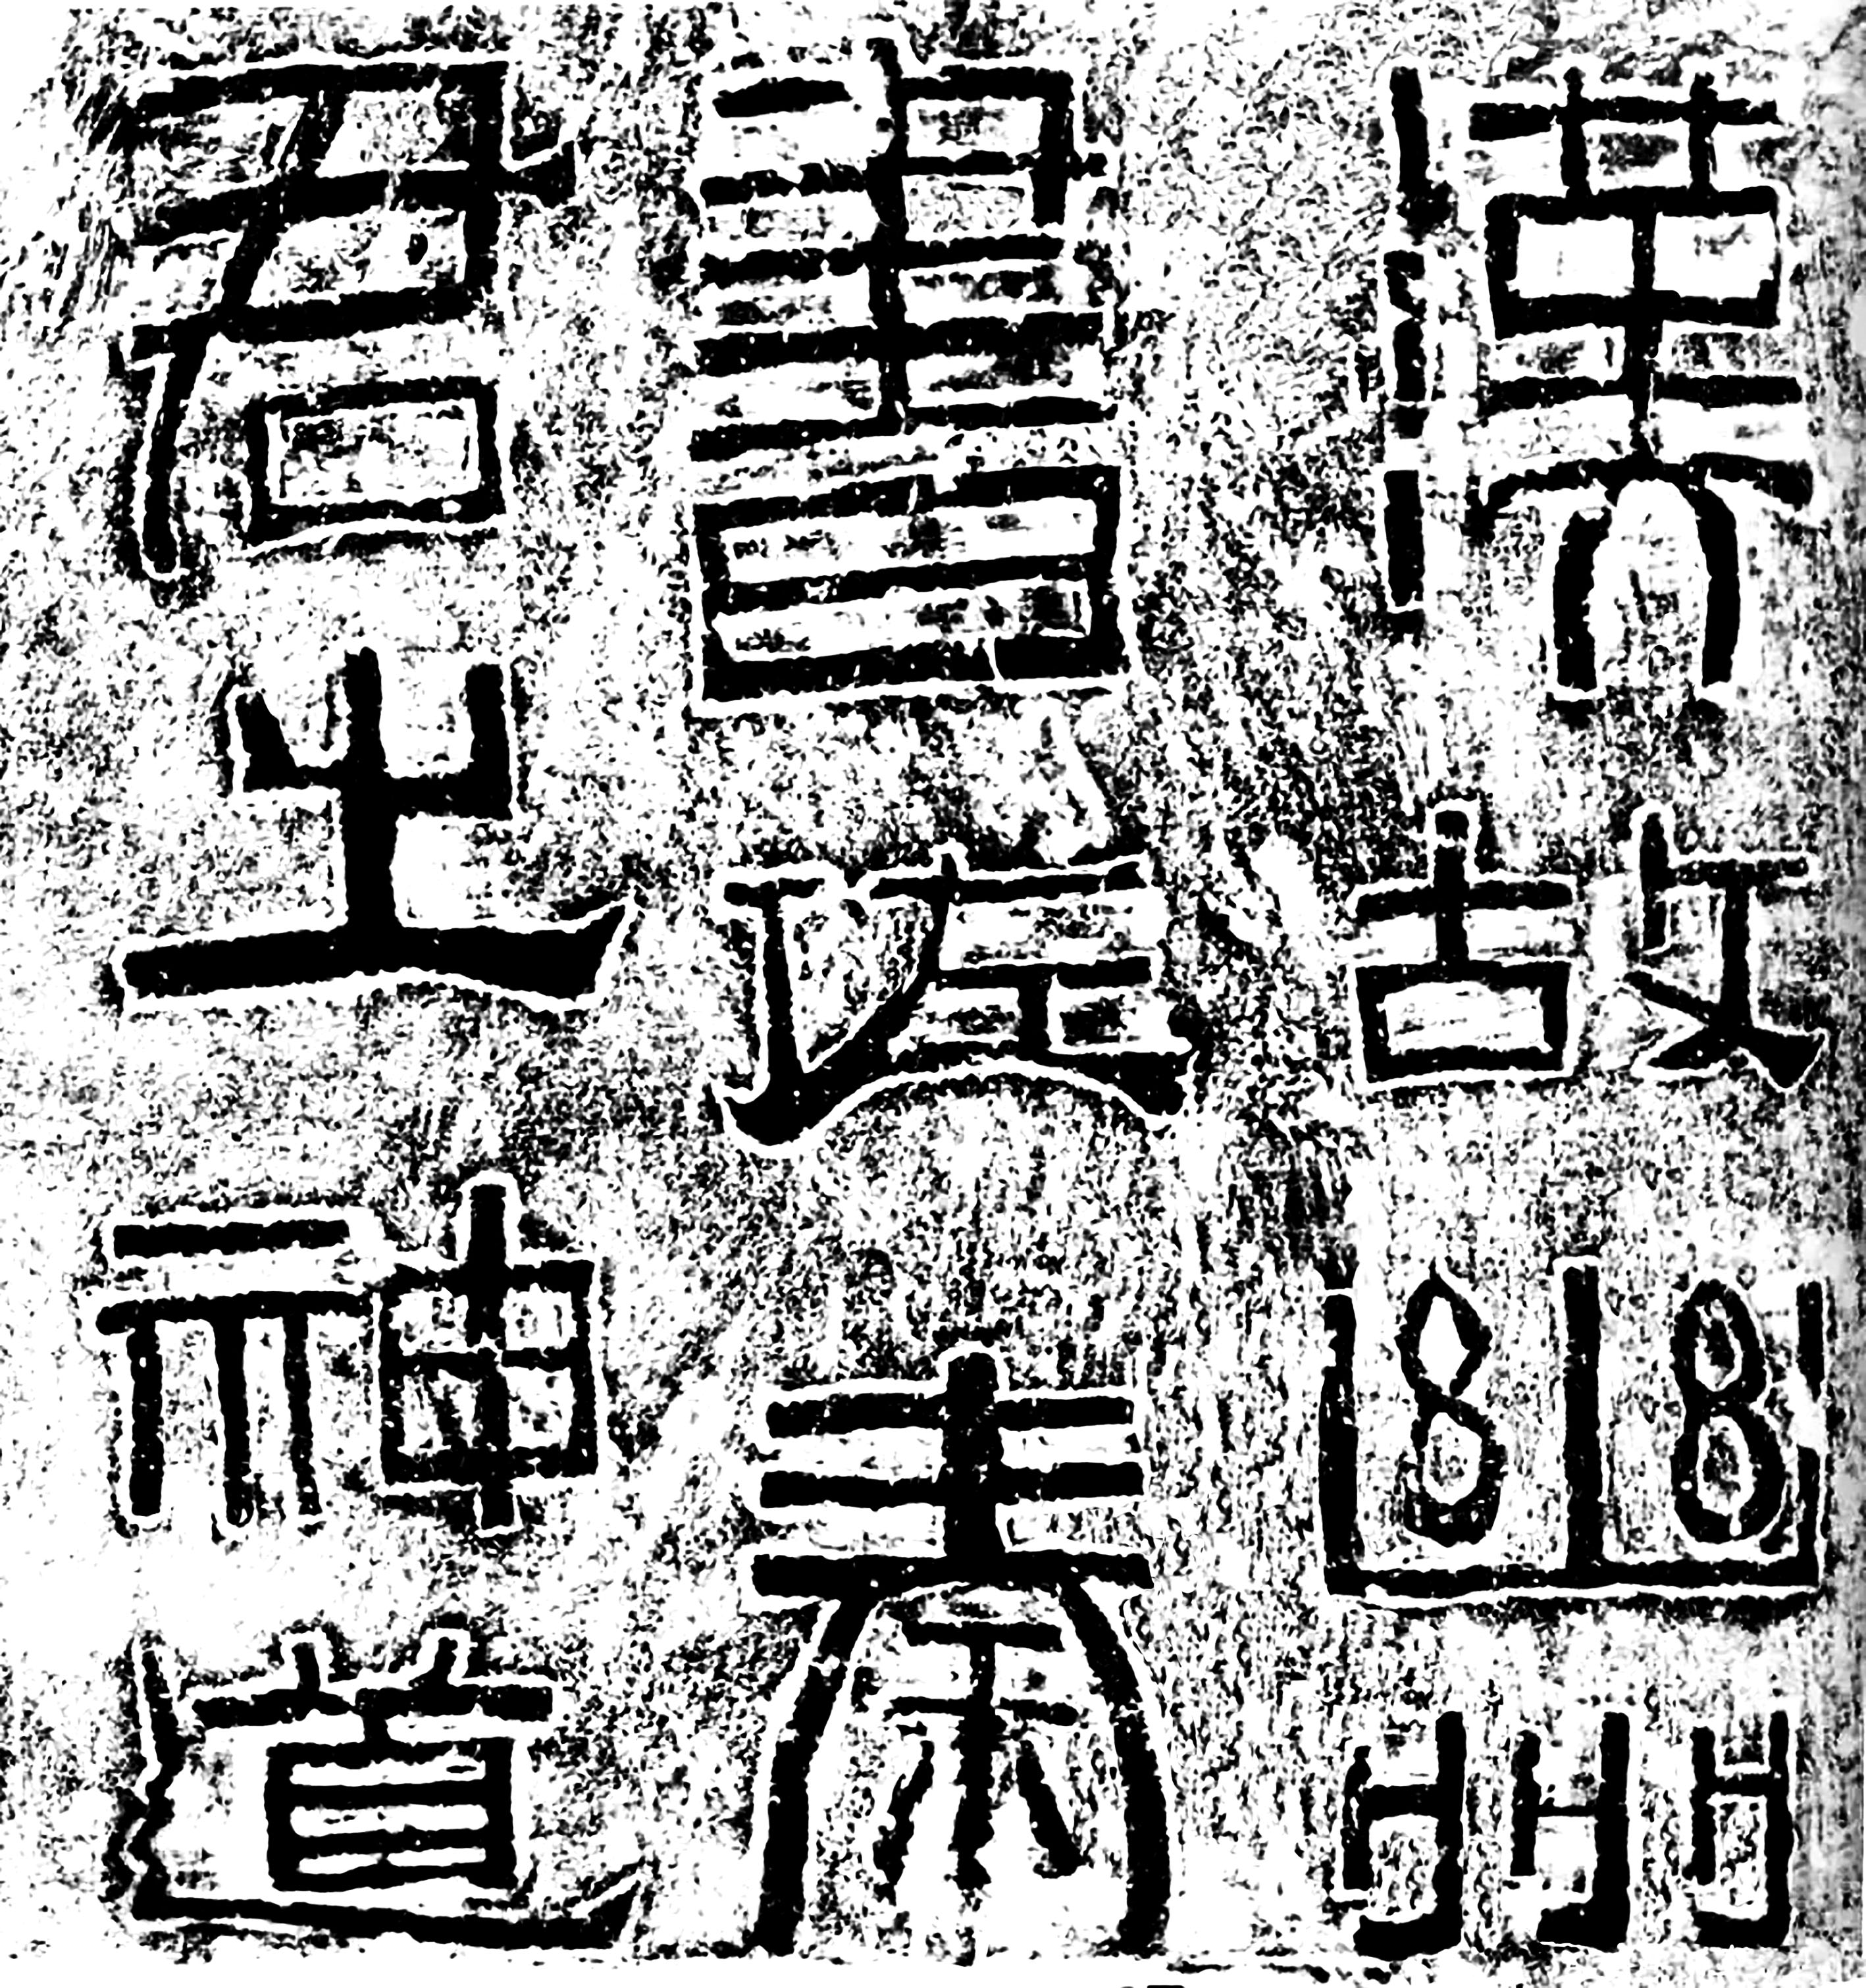 漢故幽州
書佐秦
君之神道